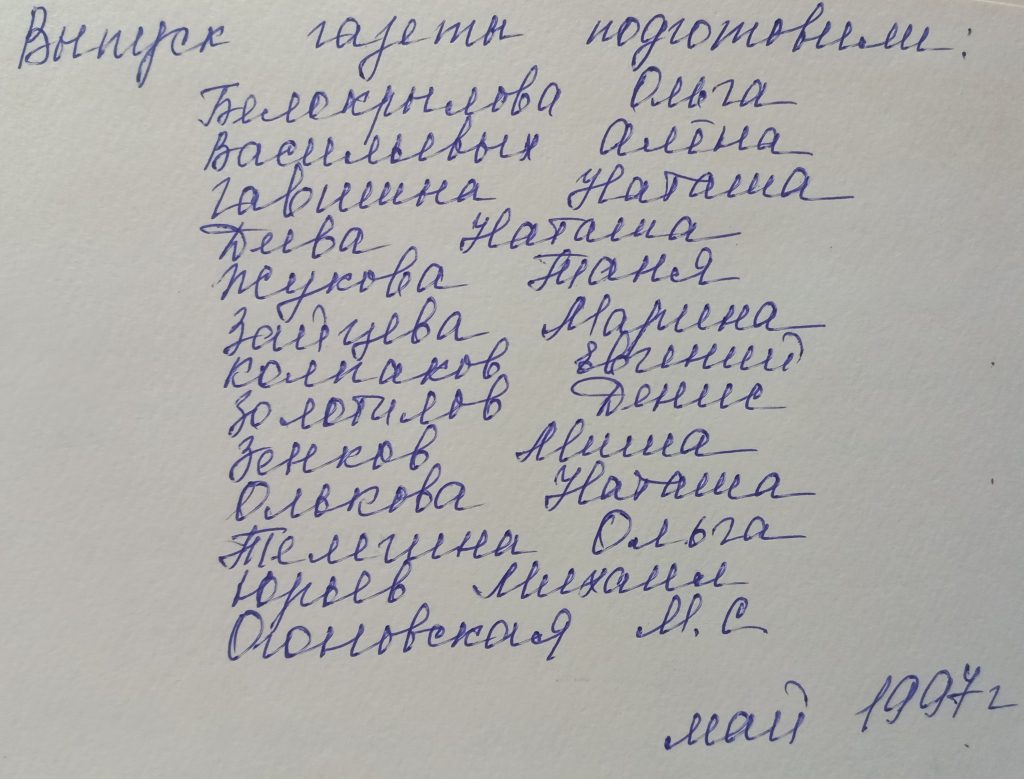 Выпуск газеты подготовили:
Белокрылова Ольга
Васильевых Алёна
Гавшина Наташа
Деева Наташа
Жукова Таня
Зайцева Марина
Колпаков Евгений
Золотилов Денис
Зенков Миша
Олькова Наташа
Телегина Ольга
Юрьев Михаил
Огоновская М. С.
май 1997 г